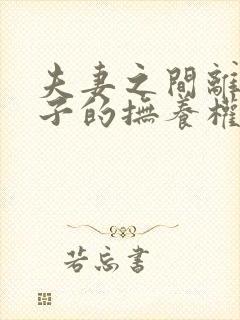 夫妻之間離
子的撫養權
若忘書